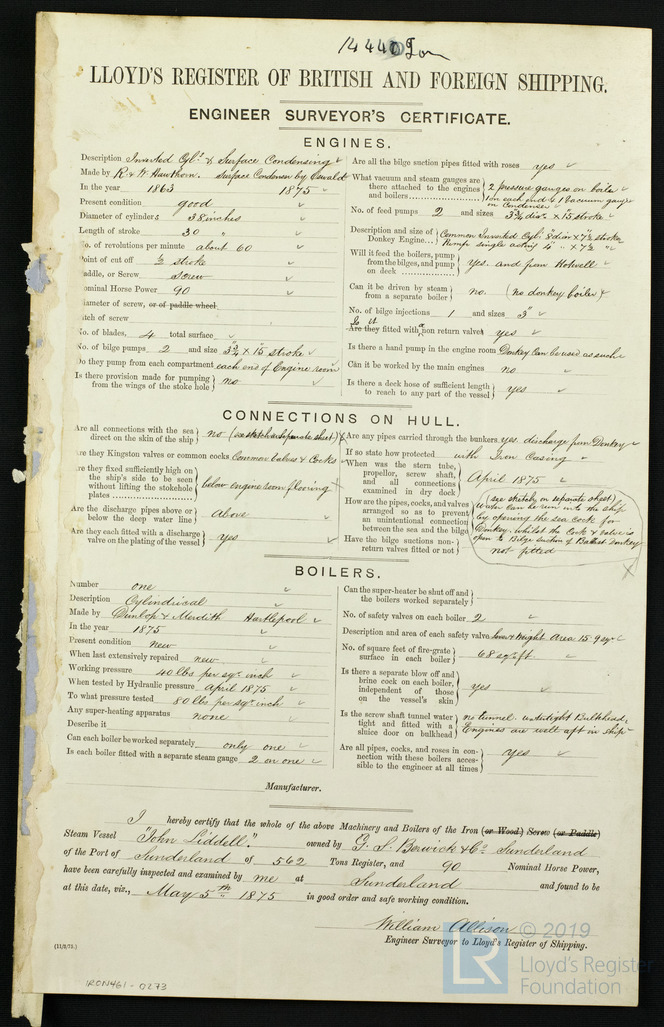 14440 Lon
LLOYD'S REGISTER OF BRITISH AND FOREIGN SHIPPING.
ENGINEER SURVEYOR'S CERTIFICATE.
ENGINES.
Description Inverted Cyl.s & Surface Condensing
Made by R & W Hawthorn. Surface Condenser by Oswald
In the year 1863 1875
Present condition good
Diameter of cylinders 38 inches
Length of stroke 30 "
No. of revolutions per minute about 60
Point of cut off ½ stroke
Paddle, or Screw Screw
Nominal Horse Power 90
Diameter of screw, or of paddle wheel
Pitch of screw
No. of blades, 4 total surface
No. of bilge pumps 2 and size 3¾ x 15 stroke
Do they pump from each compartment each end of Engine room
Is there provision made for pumping from the wings of the stoke hole } no
Are all the bilge suction pipes fitted with roses yes
What vacuum and steam gauges are there attached to the engines and boilers } 2 pressure gauges on boiler
1 on each end & 1 Vacuum gauge
on Condenser
No. of feed pumps 2 and sizes 3¾ dia. x 15 stroke
Description and size of Donkey Engine } Common Inverted Cyl. 8 dia x 7½ stroke
Pump single acting 4 " x 7½ "
Will it feed the boilers, pump from the bilges, and pump on deck } yes. and from Hotwell
Can it be driven by steam from a separate boiler } no. (no donkey boiler)
No. of bilge injections 1 and sizes 3"
Is it
Are they fitted with a non return valves yes
Is there a hand pump in the engine room Donkey can be used as such
Can it be worked by the main engines no
Is there a deck hose of sufficient length to reach to any part of the vessel } yes
CONNECTIONS ON HULL.
Are all connections with the sea direct on the skin of the ship } no (see sketch on separate sheet)
Are they Kingston valves or common cocks Common valves & Cocks
Are they fixed sufficiently high on the ship's side to be seen without lifting the stokehole plates } below engine room flooring
Are the discharge pipes above or below the deep water line } Above
Are they each fitted with a discharge valve on the plating of the vessel } yes
Are any pipes carried through the bunkers yes, discharge from Donkey
If so state how protected with Iron Casing
When was the stern tube, propeller, screw shaft, and all connections examined in dry dock } April 1875
How are the pipes, cocks, and valves arranged so as to prevent an unintentional connection between the sea and the bilge } (see sketch on separate sheet)
Water can be run into the ship
by opening the sea cock for
Donkey. whilst the Cock & valve is
open to Bilge suction of Ballast Donkey
Have the bilge suctions non-return valves fitted or not } not fitted
BOILERS.
Number one
Description Cylindrical
Made by Dunlop & Meredith Hartlepool
In the year 1875
Present condition New
When last extensively repaired new
Working pressure 40 lbs per sqr inch
When tested by Hydraulic pressure April 1875
To what pressure tested 80 lbs per sqr inch
Any super-heating apparatus none
Describe it
Can each boiler be worked separately only one
Is each boiler fitted with a separate steam gauge 2 on one
Can the super-heater be shut off and the boilers worked separately }
No. of safety valves on each boiler 2
Description and area of each safety valve lever & weight Area 15.9 sqr
No. of square feet of fire-grate surface in each boiler } 68 sqr ft.
Is there a separate blow off and brine cock on each boiler, independent of those on the vessel's skin } yes
Is the screw shaft tunnel water tight and fitted with a sluice door on bulkhead } no tunnel. watertight Bulkhead,
Engines are well aft in ship
Are all pipes, cocks, and roses in connection with these boilers accessible to the engineer at all times } yes
Manufacturer.
I hereby certify that the whole of the above Machinery and Boilers of the Iron (or Wood) Screw (or Paddle)
Steam Vessel "John Liddell". owned by G. S. Berwick & Co. Sunderland
of the Port of Sunderland of 562 Tons Register, and 90 Nominal Horse Power,
have been carefully inspected and examined by me at Sunderland and found to be
at this date, viz., May 5th 1875 in good order and safe working condition.
William Allison
Engineer Surveyor to Lloyd's Register of Shipping.
(11/2/75.)
IRON461-0273
LR © 2019
Lloyd's Register
Foundation